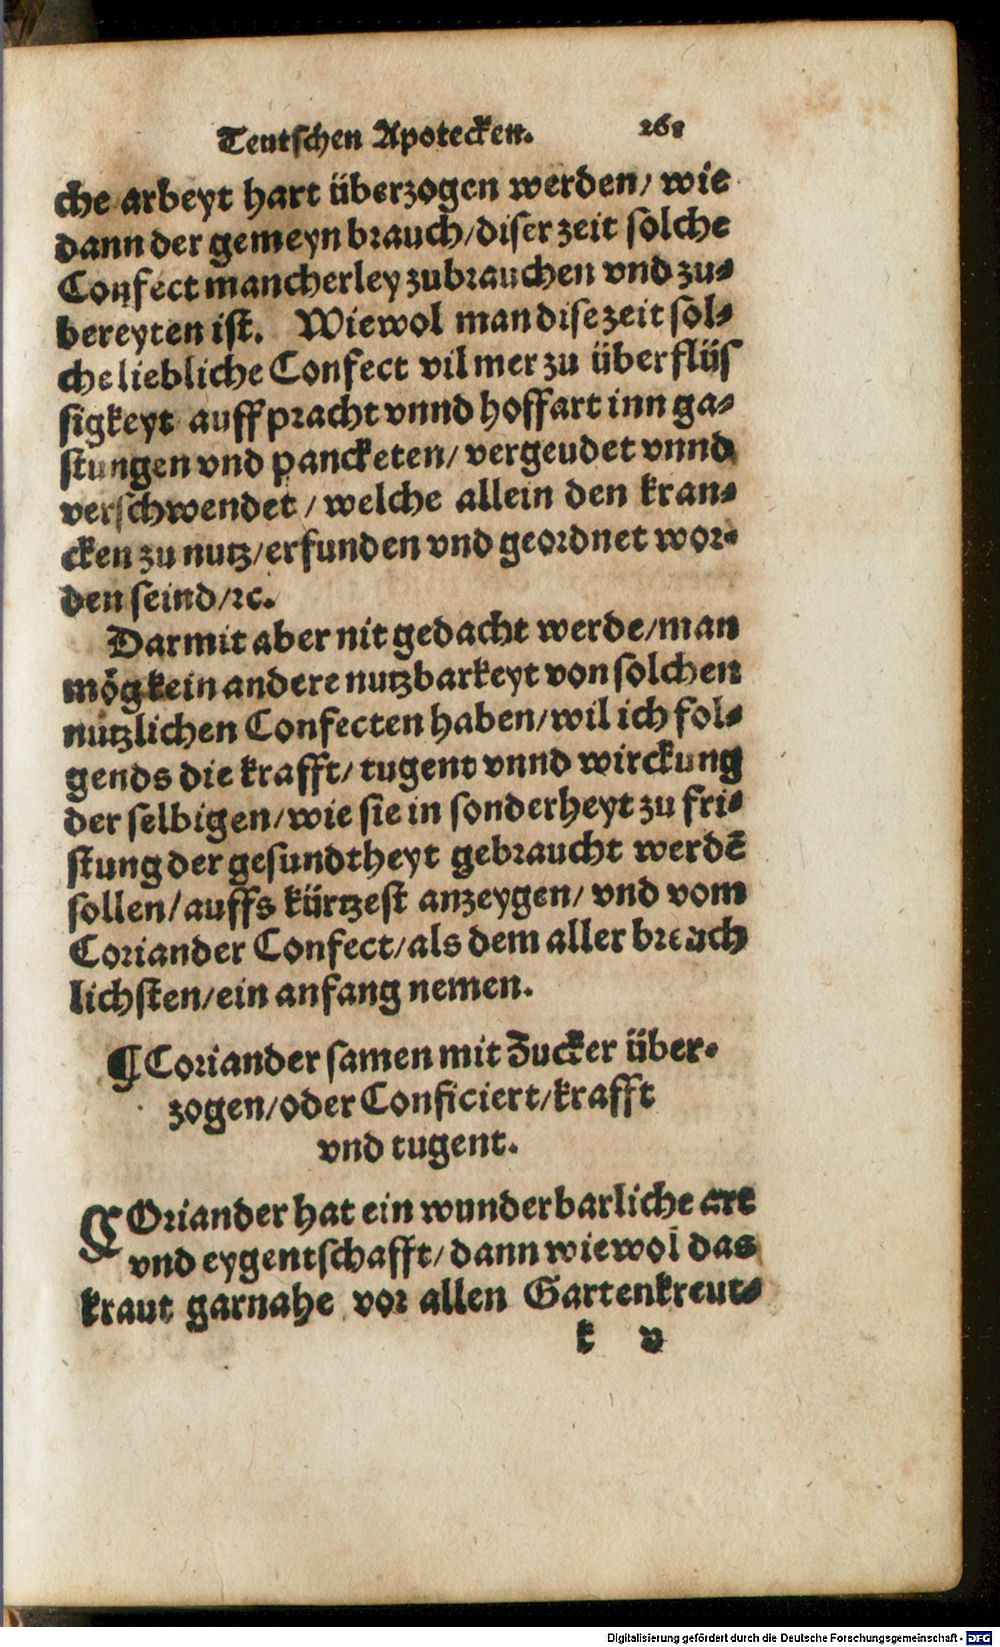 Teutschen Apotecken. 268
che arbeyt hart überzogen werden/ wie
dann der gemeyn brauch/diser zeit solche
Confect mancherley zubrauchen vnd zu⸗
bereyten ist. Wiewol man dise zeit sol⸗
che liebliche Confect vil mer zu überflüs
sigkeyt auff pracht vnnd hoffart inn ga⸗
stungen vnd pancketen/ vergeudet vnnd
verschwendet / welche allein den kran⸗
cken zu nutz/erfunden vnd geordnet wor⸗
den seind/ꝛc.
Darmit aber nit gedacht werde/man
mög kein andere nutzbarkeyt von solchen
nutzlichen Confecten haben/wil ich fol⸗
gends die krafft/ tugent vnnd wirckung
der selbigen/wie sie in sonderheyt zu fri⸗
stung der gesundtheyt gebraucht werdē
sollen/auffs kürtzest anzeygen/ vnd vom
Coriander Confect/als dem aller breuch
lichsten/ein anfang nemen.
¶ Coriander samen mit Zucker über⸗
zogen/oder Conficiert/krafft
vnd tugent.
COriander hat ein wunderbarliche art
vnd eygentschafft/ dann wiewol das
kraut garnahe vor allen Gartenkreut⸗
k v
Digitalisierung gefördert durch die Deutsche Forschungsgemeinschaft - DFG